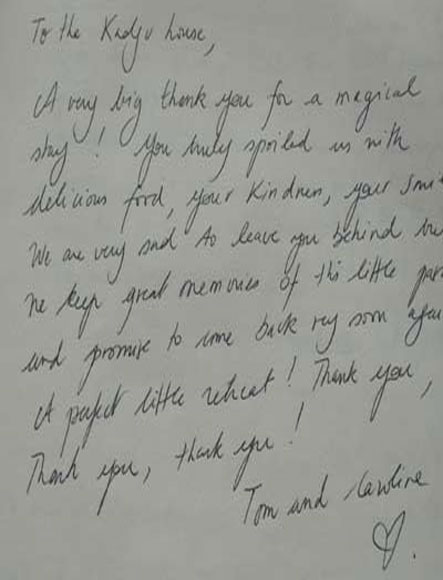 To the Kadju house,
A very big thank you for a magical
stay! You truly spoiled us with
delicious food, your kindness, your smi
We are very sad to leave you behind bu
we keep great memories of this little par
and promise to come back very soon agai
A perfect little retreat! Thank you,
Thank you, thank you!
Tom and